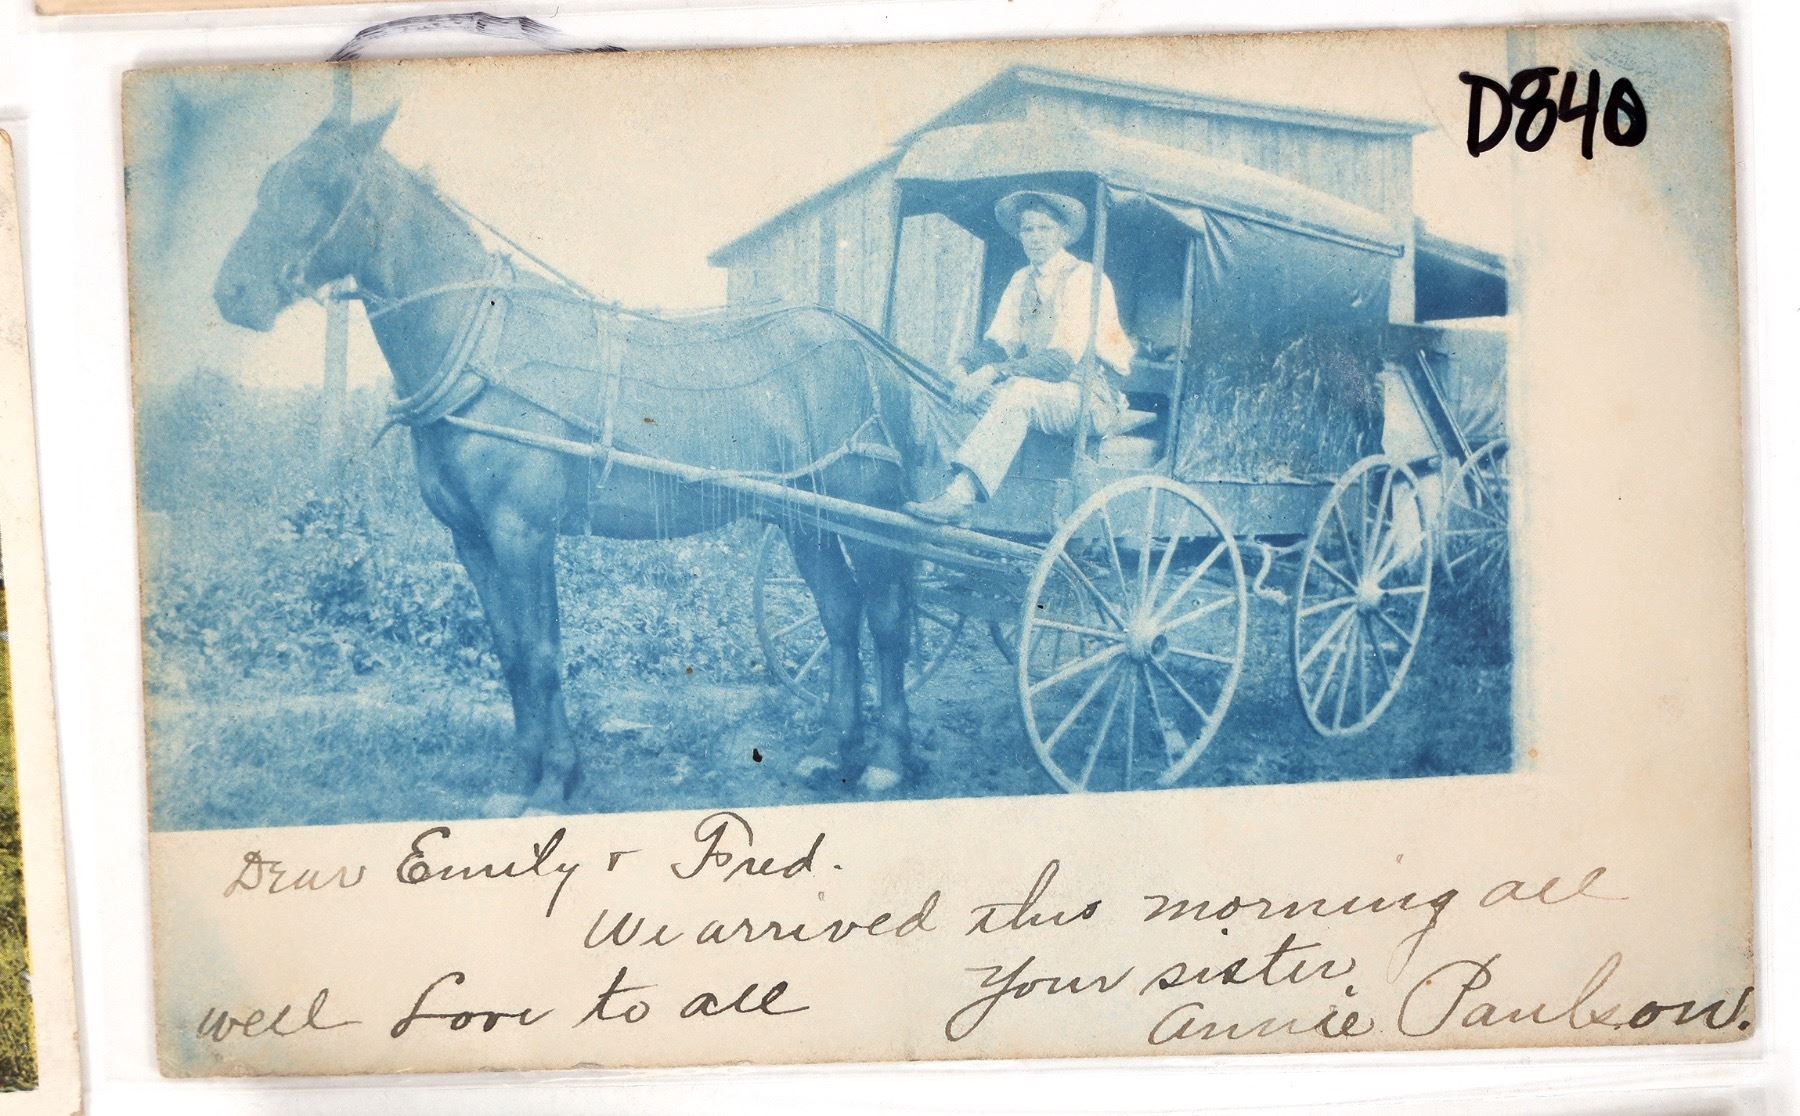 D840
Dear Emily & Fred.
We arrived this morning all
well Love to all Your sister
Annie Paulson.